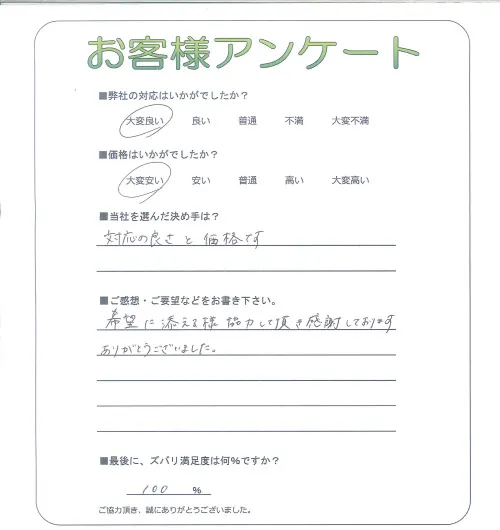 お客様アンケート
■弊社の対応はいかがでしたか？
大変良い 良い 普通 不満 大変不満
■価格はいかがでしたか？
大変安い 安い 普通 高い 大変高い
■当社を選んだ決め手は？
対応の良さと価格です
■ご感想・ご要望などをお書き下さい。
希望に添える様協力して頂き感謝しております
ありがとうございました。
■最後に、ズバリ満足度は何%ですか？
100 %
ご協力頂き、誠にありがとうございました。